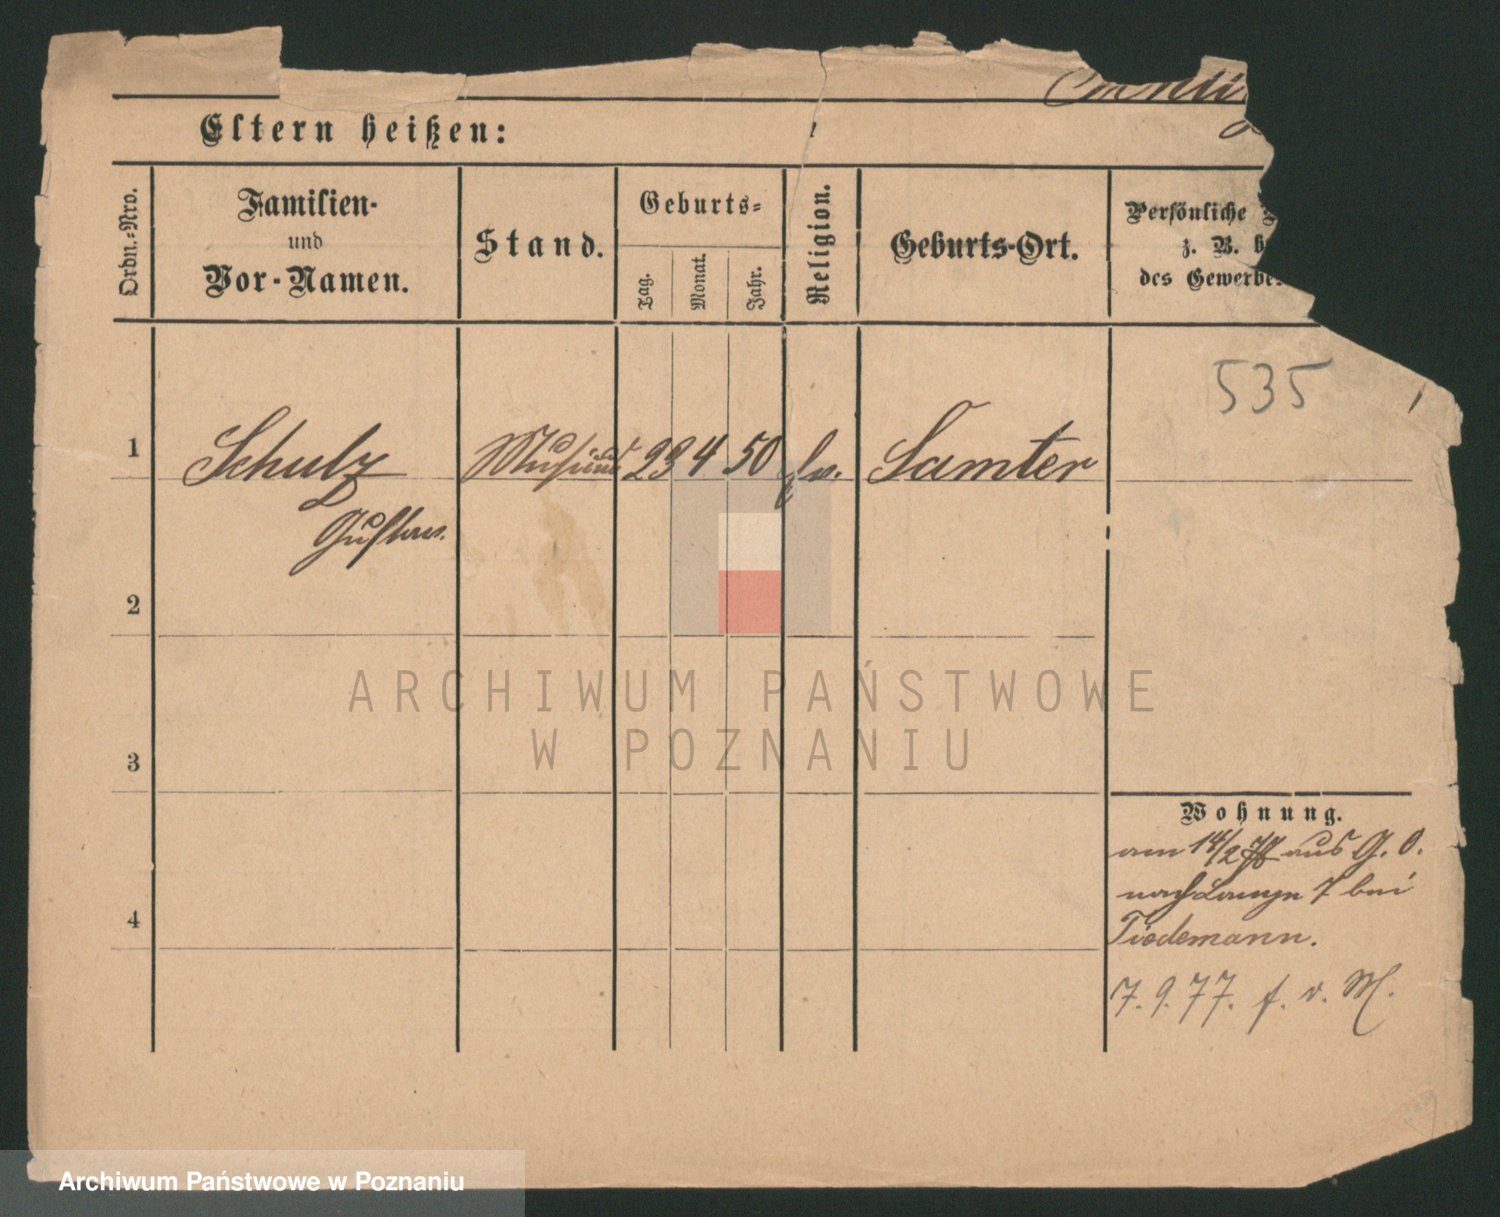 Eltern heißen:
Ordn.-Nro.
Familien-
und
Vor-Namen.
Stand.
Geburts-
Tag.
Monat.
Jahr.
Religion.
Geburts-Ort.
Persönliche
z. B.
des Gewerbe
535
1
Schulz
Gustav.
23 4 50
Samter
2
3
4
Wohnung.
am 14/2 76 aus G. O.
nach Lange 7 bei
Tiedemann.
7. 9. 77. f. v. M.
ARCHIWUM PAŃSTWOWE
W POZNANIU
Archiwum Państwowe w Poznaniu